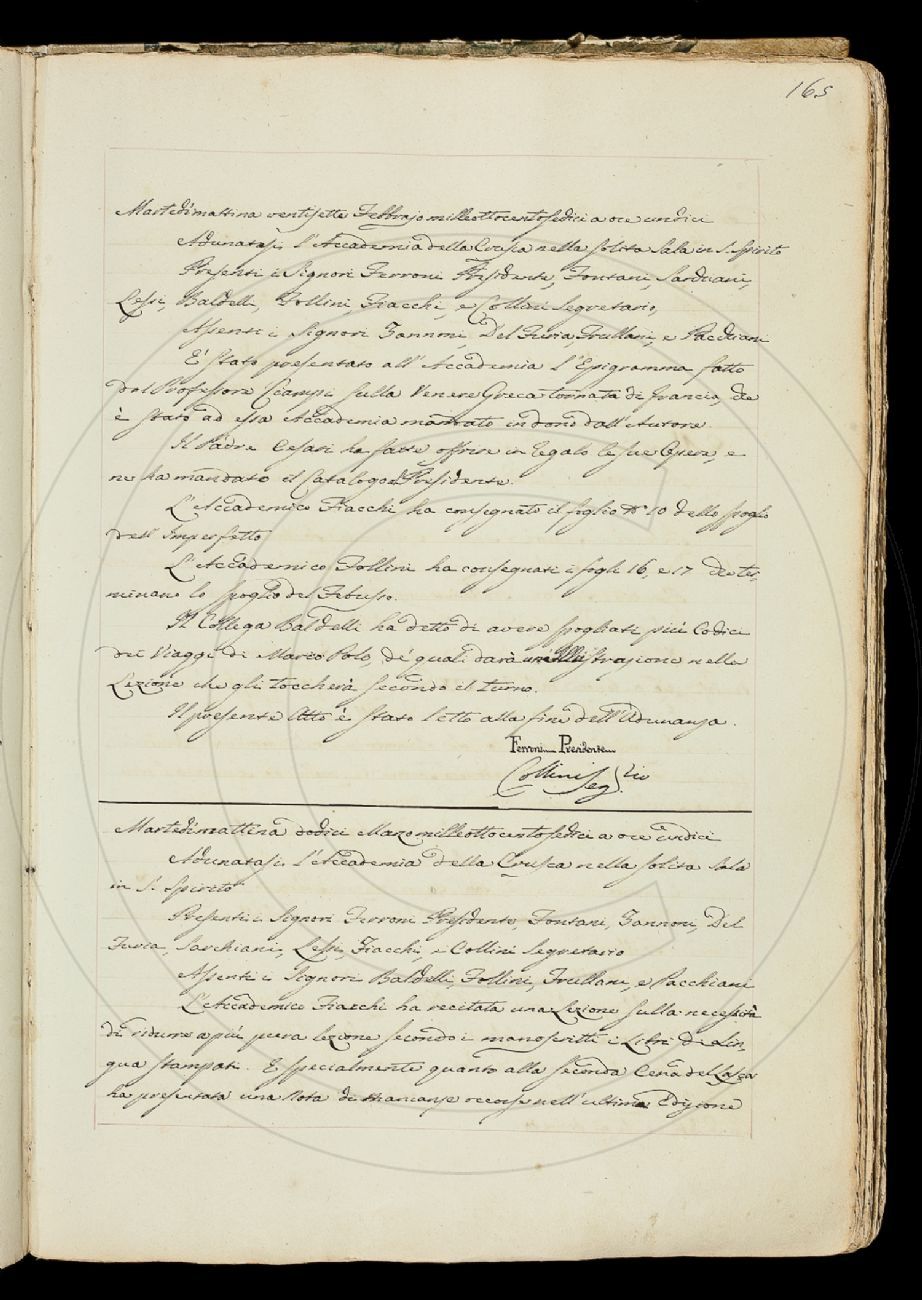 165
Martedì mattina ventisette Febbrajo milleottocentosedici a ore undici
Adunatasi l'Accademia della Crusca nella solita Sala in S. Spirito
Presenti i Signori Ferroni Presidente, Fontani, Sarchiani,
Lessi, Baldelli, Follini, Fiacchi, e Collini Segretario,
Assenti i Signori Zannoni, Del Furia, Frullani, e Pacchiani
È stato presentato all'Accademia l'Epigramma fatto
dal Professore Ciampi sulla Venere Greca tornata di Francia, che
è stato ad essa Accademia mandato in dono dall'Autore.
Il Padre Cesari ha fatto offrire in regalo le sue Opere, e
ne ha mandato il Catalogo al Presidente.
L'Accademico Fiacchi ha consegnato il foglio N° 10 dello spoglio
dell'Imperfetto
L'Accademico Follini ha consegnati i fogli 16, e 17 che ter-
minano lo spoglio del Febusso.
Il Collega Baldelli ha detto di avere spogliati più Codici
dei Viaggi di Marco Polo, de' quali darà un'Illustrazione nella
Lezione che gli toccherà secondo il turno.
Il presente Atto è stato letto alla fine dell'Adunanza.
Ferroni Presidente
Collini Seg.rio
Martedì mattina dodici Marzo milleottocentosedici a ore undici
Adunatasi l'Accademia della Crusca nella solita Sala
in S. Spirito
Presenti i Signori Ferroni Presidente, Fontani, Zannoni, Del
Furia, Sarchiani, Lessi, Fiacchi, e Collini Segretario
Assenti i Signori Baldelli, Follini, Frullani, e Pacchiani
L'Accademico Fiacchi ha recitata una Lezione sulla necessità
di ridurre a più pura lezione secondo i manoscritti i Libri di Lin-
gua stampati. E specialmente quanto alla seconda Cena del Lasca
ha presentata una Nota di mancanze occorse nell'ultima Edizione